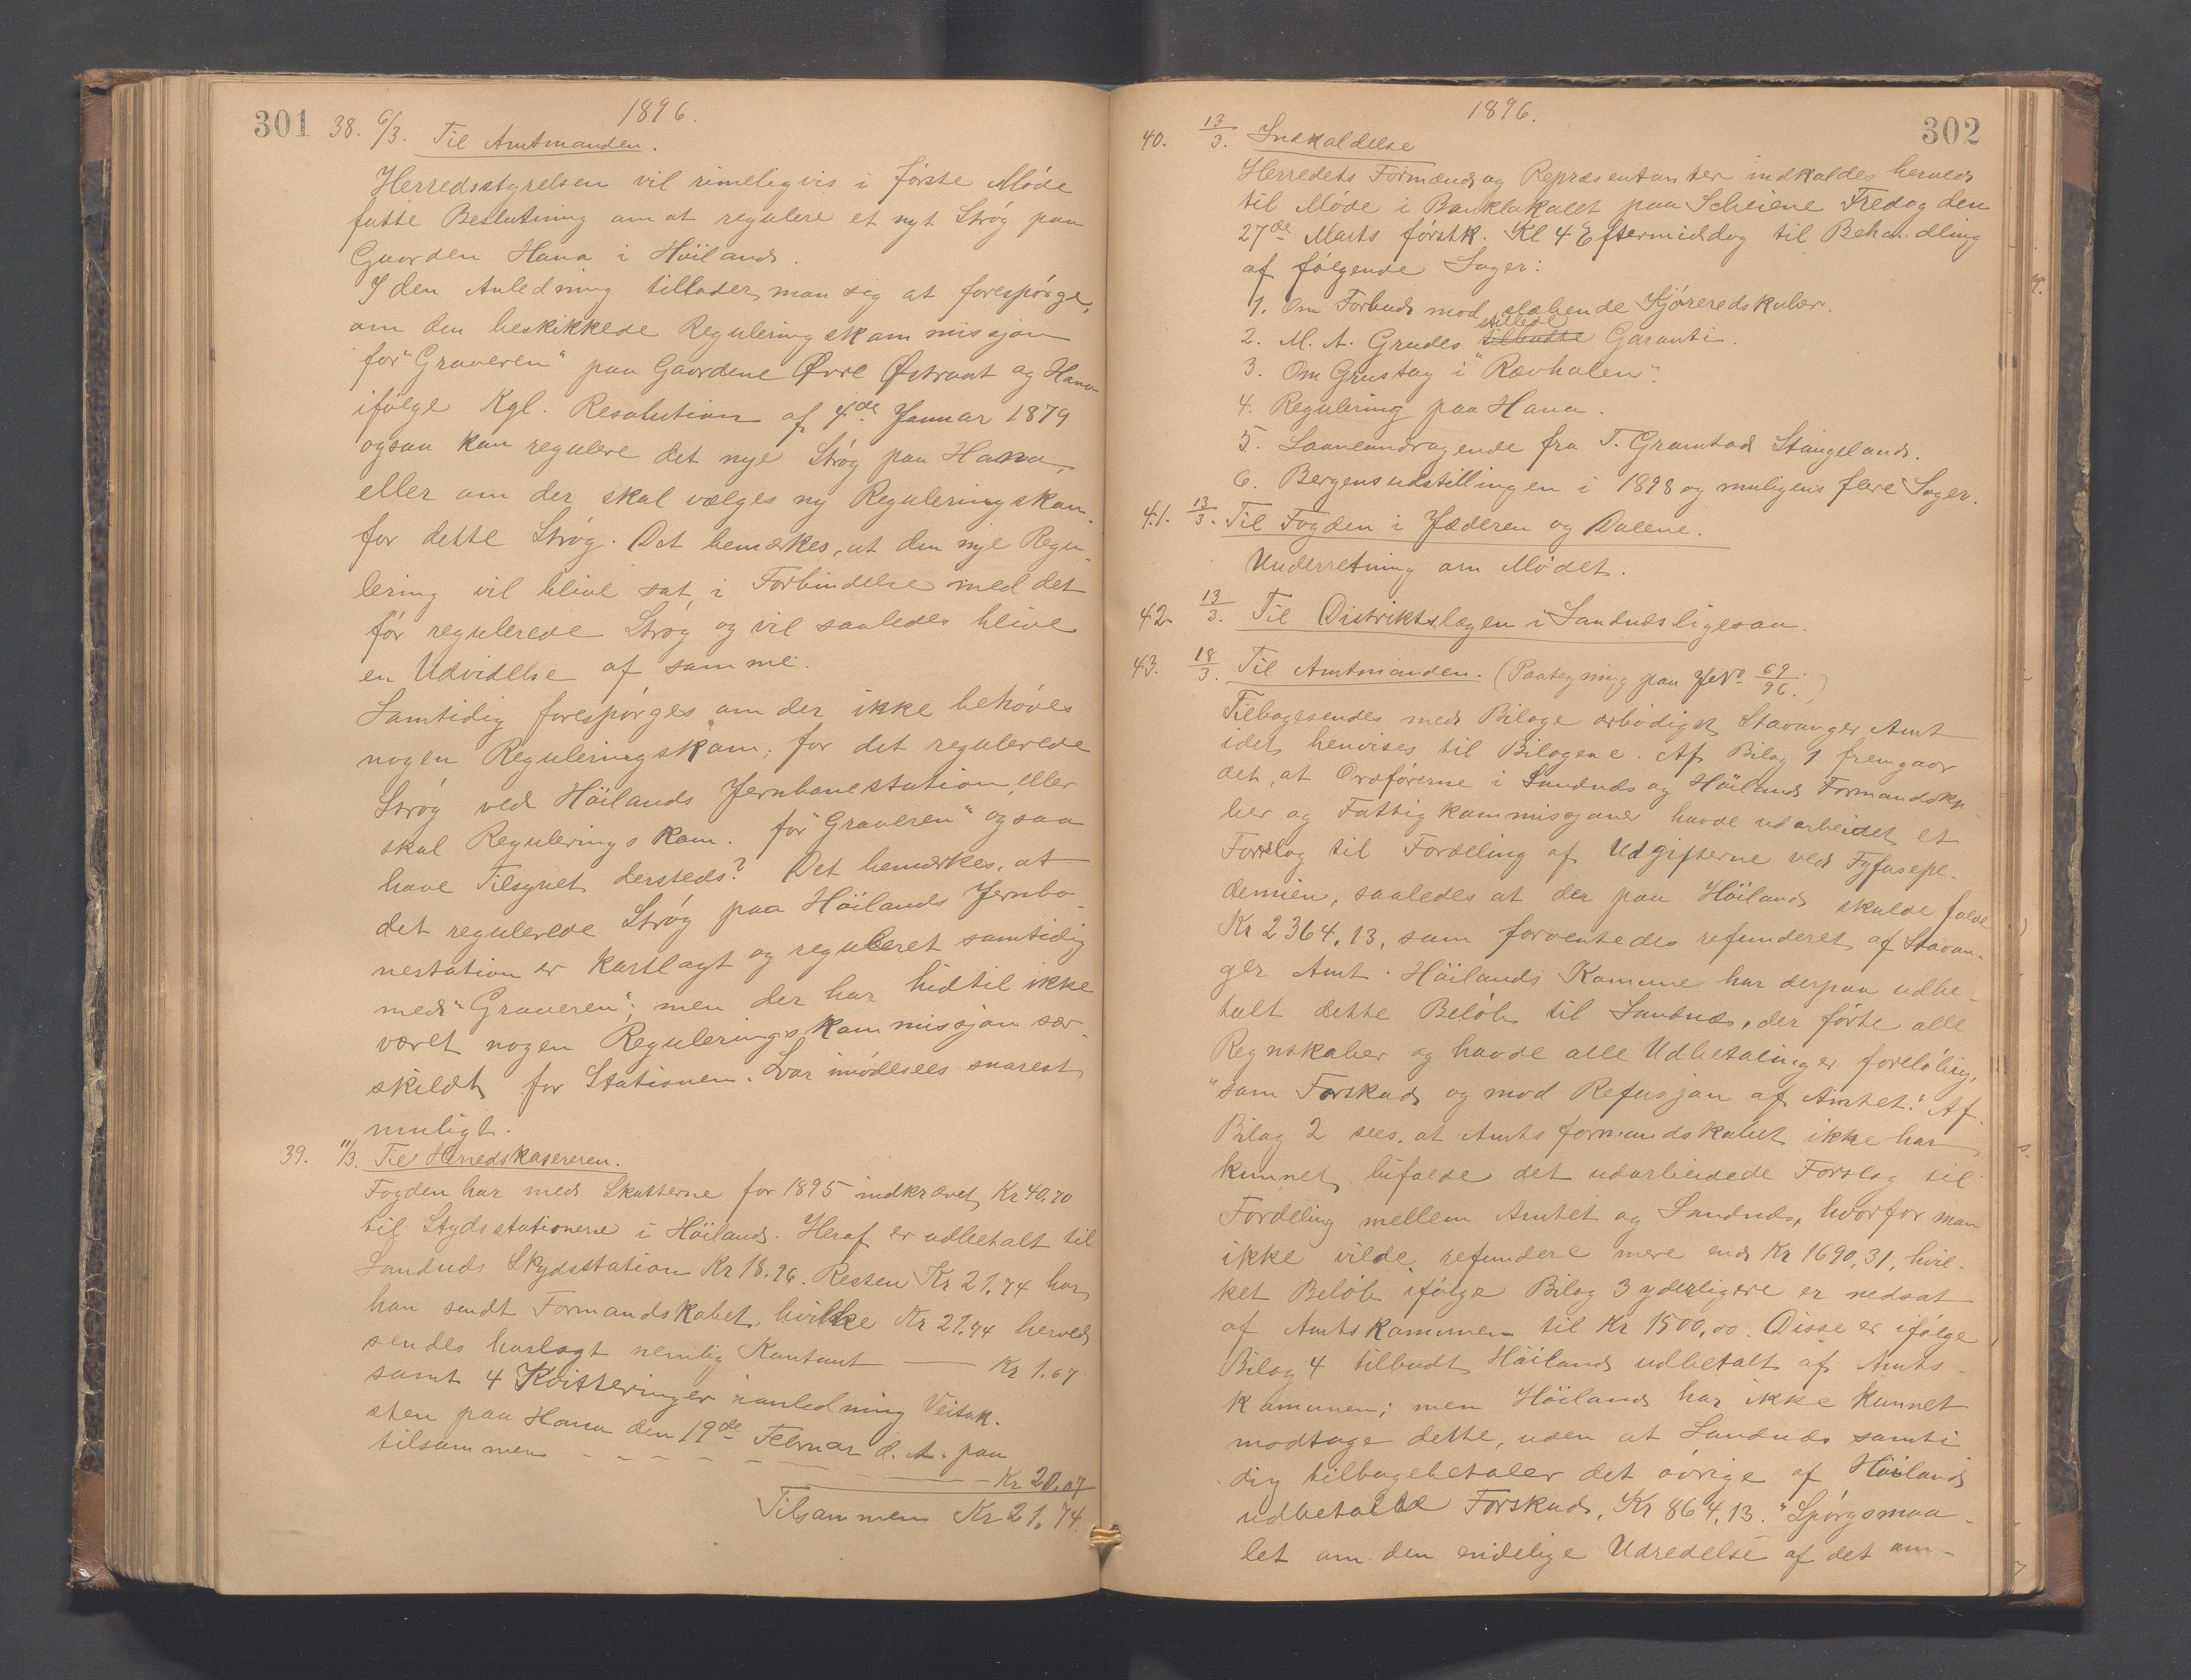 301
1896.
38. 6/3. Til Amtmanden.
Herredsstyrelsen vil rimeligvis i første Møde
fatte Beslutning om at regulere et nyt Strøg paa
Gaarden Hana i Höiland.
I den Anledning tillader man sig at forespørge,
om den beskikkede Reguleringskommissjon
for "Graveren" paa Gaardene Øvre Østraat og Hana
ifølge Kgl. Resolution af 4de Januar 1879
ogsaa kan regulere det nye Strøg paa Hana,
eller om der skal vælges ny Reguleringskom.
for dette Strøg. Det bemærkes, at den nye Regu-
lering vil blive sat i Forbindelse med det
før regulerede Strøg og vil saaledes blive
en Udvidelse af samme.
Samtidig forespørges om der ikke behøves
nogen Reguleringskom. for det regulerede
Strøg ved Höilands Jernbanestation, eller
skal Reguleringskom. for "Graveren" ogsaa
have Tilsynet dersteds? Det bemærkes, at
det regulerede Strøg paa Höilands Jernba-
nestation er kartlagt og reguleret samtidig
med "Graveren"; men der har hidtil ikke
været nogen Reguleringskommissjon sær-
skildt for Stationen. Svar imødesees snarest
muligt.
39. 11/3. Til Herredskasereren.
Fogden har med Skatterne for 1895 indkrævet Kr 40.70
til Skydsstationerne i Höiland. Heraf er udbetalt til
Sandnes Skydsstation Kr 18.96. Resten Kr 21.74 har
han sendt Formandskabet, hvilke Kr 21.74 herved
sendes harlagt nemlig Kontant — Kr 1.67
samt 4 Kvitteringer ianledning Veitak-
sten paa Hana den 19de Februar d. A. paa
tilsammen - - - - - Kr 20.07
Tilsammen Kr 21.74.
302
1896.
40. 13/3. Indkaldelse
Herredets Formænd og Repræsentanter indkaldes herved
til Møde i Banklokalet paa Scheiene Fredag den
27de Marts førstk. Kl 4 Eftermiddag til Behandling
af følgende Sager:
1. Om Forbud mod slæbende Kjøreredskaber.
stillede
2. M. A. Grudes tilbudte Garanti.
3. Om Grustag i "Rævholen".
4. Regulering paa Hana.
5. Laaneandragende fra T. Gramstad Stangeland.
6. Bergensudstillingen i 1898 og muligens flere Sager.
41. 13/3. Til Fogden i Jæderen og Dalene.
Underretning om Mødet.
42. 13/3. Til Distriktslægen i Sandnes ligesaa.
43. 18/3. Til Amtmanden. (Paategning paa JNo 69/96.)
Tilbagesendes med Bilage ærbødigst Stavanger Amt
idet henvises til Bilagene. Af Bilag 1 fremgaar
det, at Ordførerne i Sandnes og Höilands Formandska-
ber og Fattigkommissjoner havde udarbeidet et
Forslag til Fordeling af Udgifterne ved Tyfusepe-
demien, saaledes at der paa Höiland skulde falde
Kr 2364,13, som forventedes refunderet af Stavan-
ger Amt. Höilands Komune har derpaa udbe-
talt dette Beløb til Sandnes, der førte alle
Regnskaber og havde alle Udbetalinger foreløbig,
"som Forskud og mod Refusjon af Amtet." Af
Bilag 2 sees, at Amtsformandskabet ikke har
kunnet bifalde det udarbeidede Forslag til
Fordeling mellem Amtet og Sandnes, hvorfor man
ikke vilde refundere mere end Kr 1690,31, hvil-
ket Beløb ifølge Bilag 3 yderligere er nedsat
af Amtskomunen til Kr 1500,00. Disse er ifølge
Bilag 4 tilbudt Höiland udbetalt af Amts-
komunen; men Höiland har ikke kunnet
modtage dette, uden at Sandnes samti
dig tilbagebetaler det øvrige af Höiland
udbetalte Forskud, Kr 864,13. "Spørgsmaa-
let om den endelige Udredelse af det om-